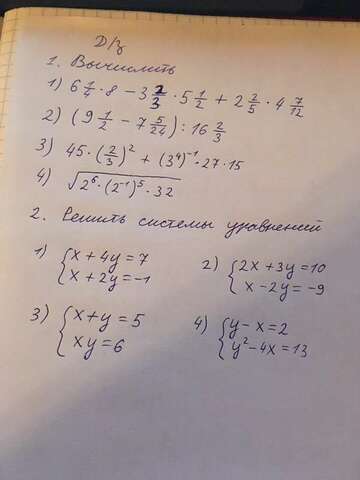 Д/з
1. Вычислить
1) 6 1/4 · 8 − 3 2/3 · 5 1/2 + 2 2/5 · 4 7/12
2) (9 1/2 − 7 5/24) : 16 2/3
3) 45 · (2/3)² + (3⁴)⁻¹ · 27 · 15
4) √(2⁶ · (2⁻¹)⁵ · 32)
2. Решить системы уравнений
1) { x + 4y = 7
x + 2y = −1
2) { 2x + 3y = 10
x − 2y = −9
3) { x + y = 5
xy = 6
4) { y − x = 2
y² − 4x = 13